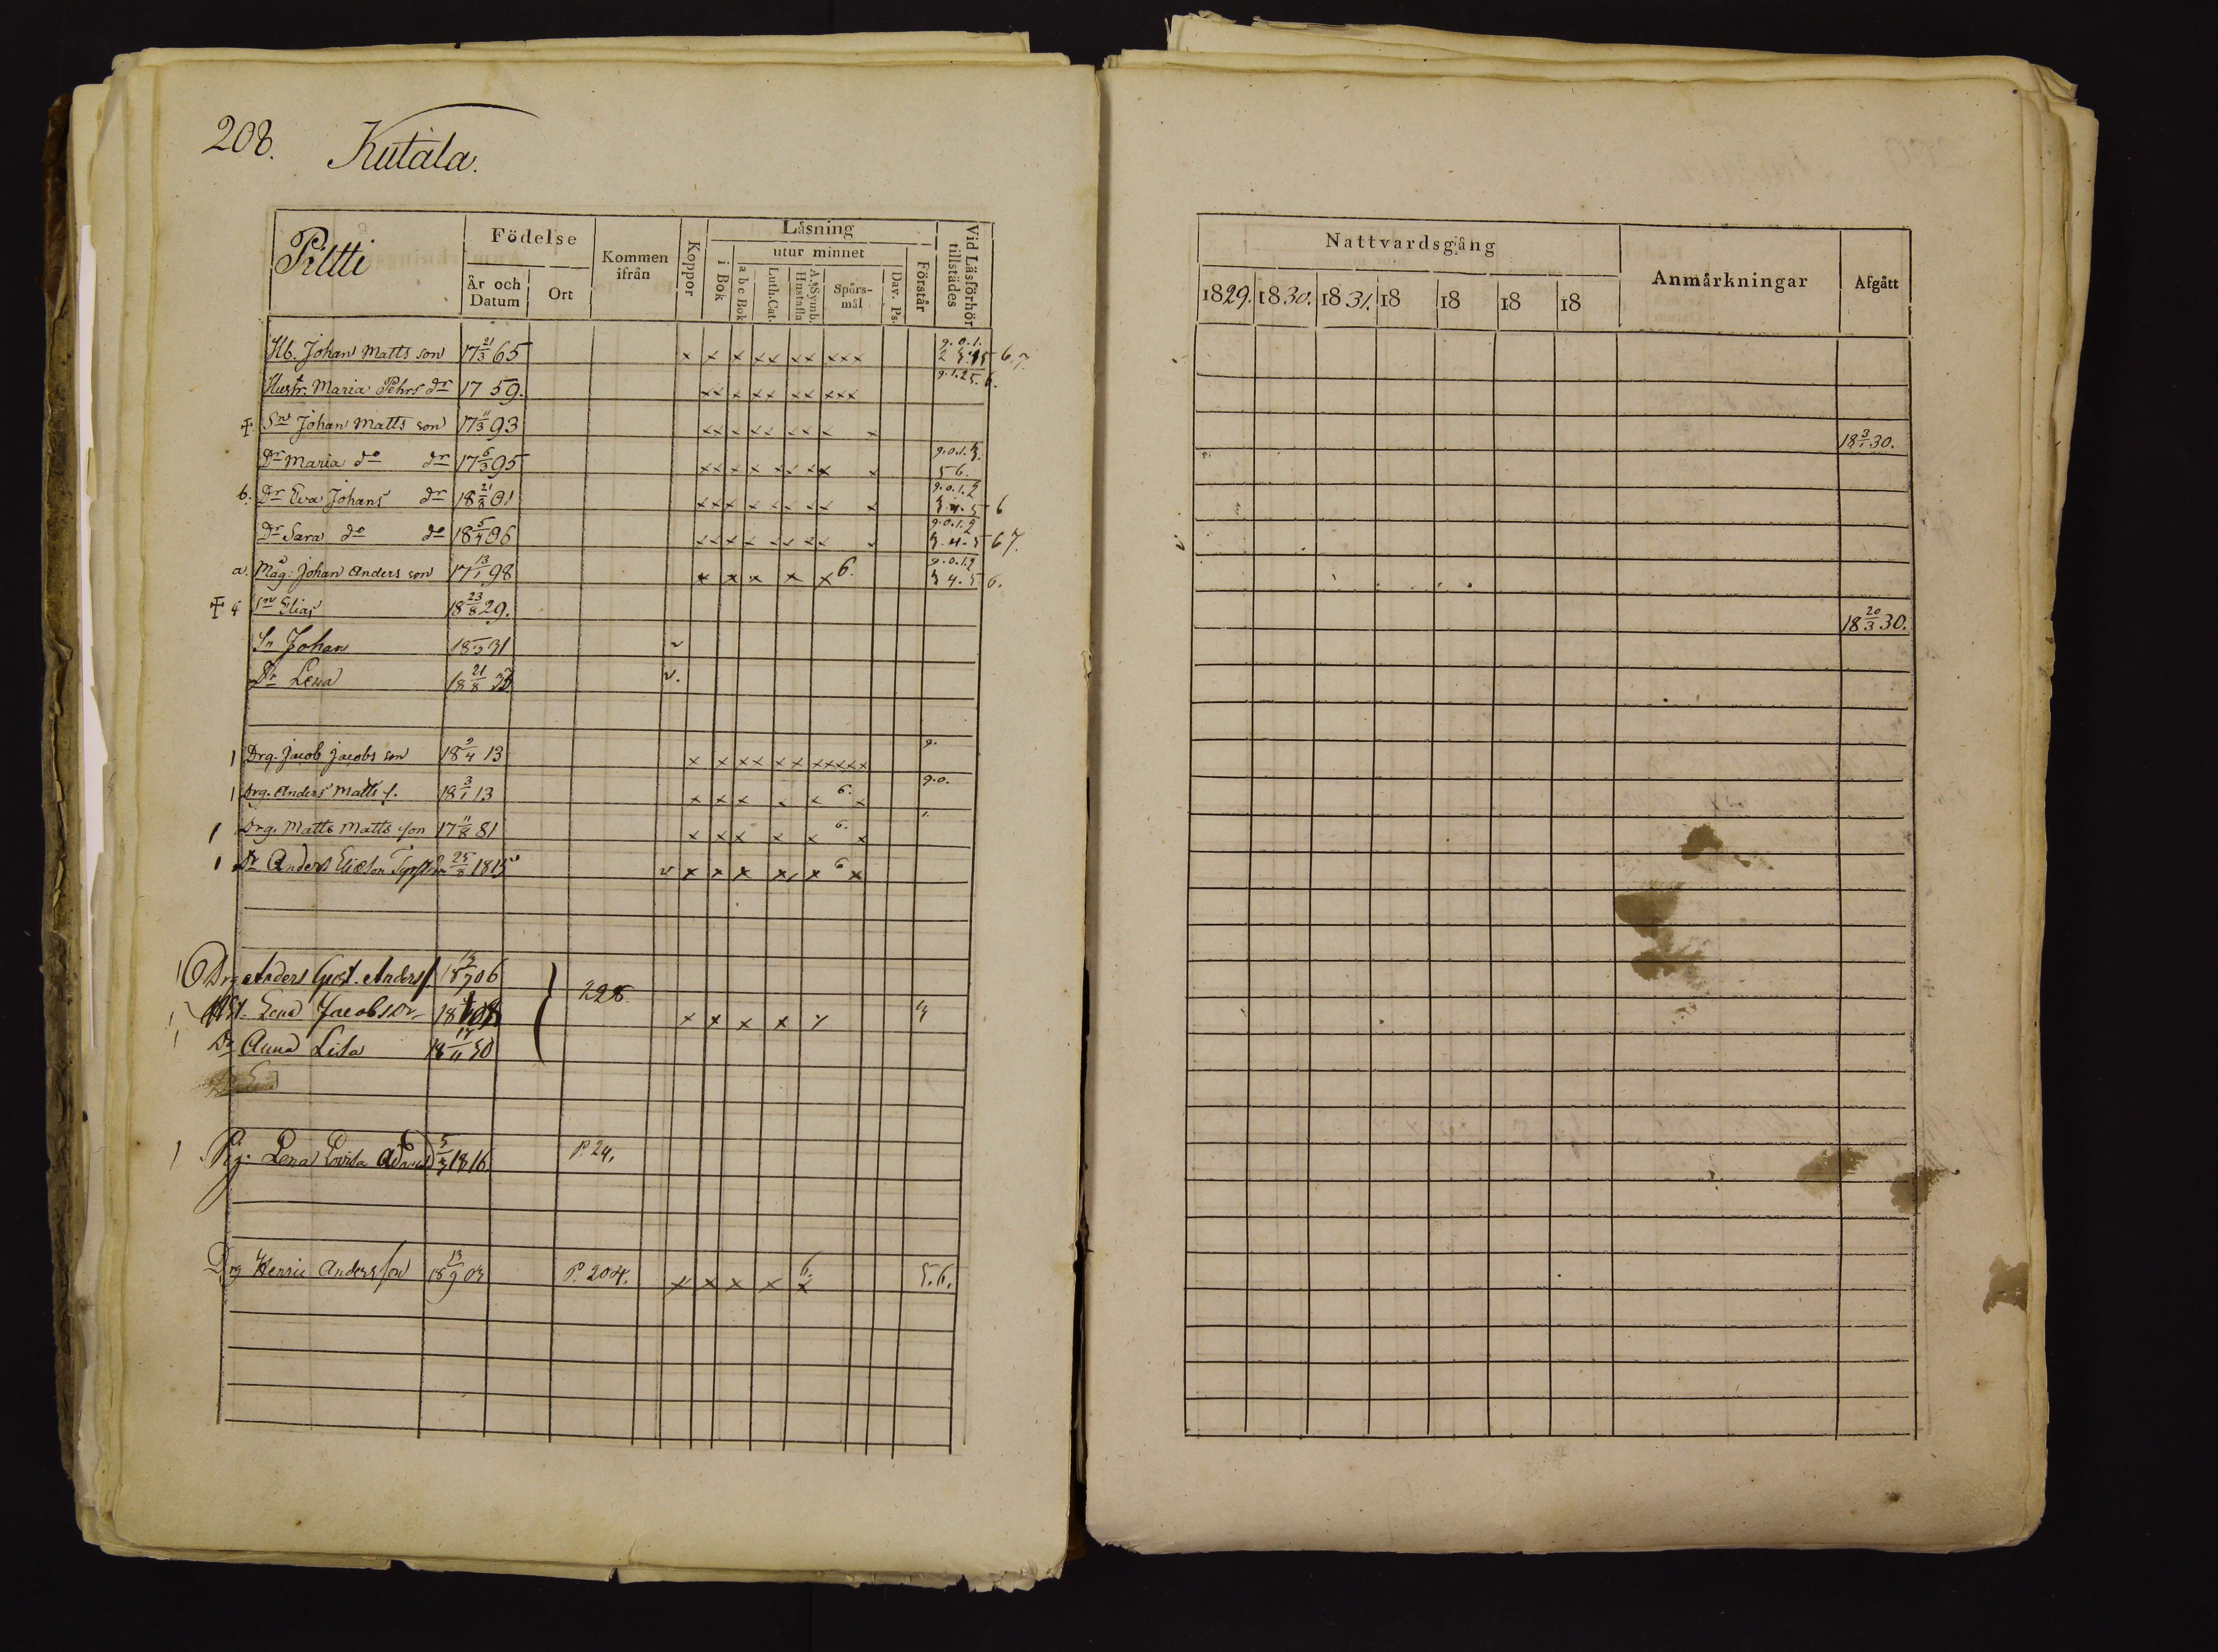 208. Kutala.
Piltti
Födelse
År och Datum
Ort
Kommen ifrån
Koppor
Läsning
i Bok
utur minnet
a b c Bok
Luth. Cat.
A. Symb. Hustafla
Spörs-mål
Dav. Ps.
Förstår
Vid Läsförhör tillstädes
Hb. Johan Matts son 17 21/3 65 x x x xx xx xxx 9.0.1. 2 3.45 6.7.
Hustr. Maria Pehrs dr 17 59. xx x xx xx xxx 9.1.25.6.
Sn Johan Matts son 17 11/3 93 xx x xx xx x x
Dr Maria do dr 17 6/3 95 xx x x xx xx x 9.0.1.3. 56.
b. Dr Eva Johans dr 18 21/8 01 xx x x xx xx x 9.0.1.2 3.4.5 6
Dr Sara do do 18 5/4 06 xx x x xx xx x 9.0.1.2 3.4.5 67.
a. Måg: Johan Anders son 17 13/1 98 x x x x x 6. 9.0.1.2 3 4.5.6.
Sn Elias 18 23/8 29.
Sn Johan 18 31 v
Dr Lena 18 21/8 33 v.
1 Drg. Jacob Jacobs son 18 9/4 13 x x xx xx xxxxx 9.
1 Drg. Anders Matts s. 18 3/1 13 x x x x x 6. x 9.0.
1 Drg. Matts Matts son 17 11/8 81 x x x x x 6. x 1.
1 Dr Anders 25/8 1815 v x x x x x 6 x
Drg Anders Gust. Anders s. 18 06 228.
Hst. Lena Jacobsdr 18 08 x x x x x 3
Dr Anna Lisa 18 17/11 30
1 Pig. Lena Lovisa 5/3 1816 P. 24.
Drg Henric Andersson 18 13/9 03 P. 204. x x x x 6. x 5.6.
Nattvardsgång
1829. 1830. 1831. 18 18 18 18
Anmärkningar
Afgått
18 3/1 30.
18 20/3 30.